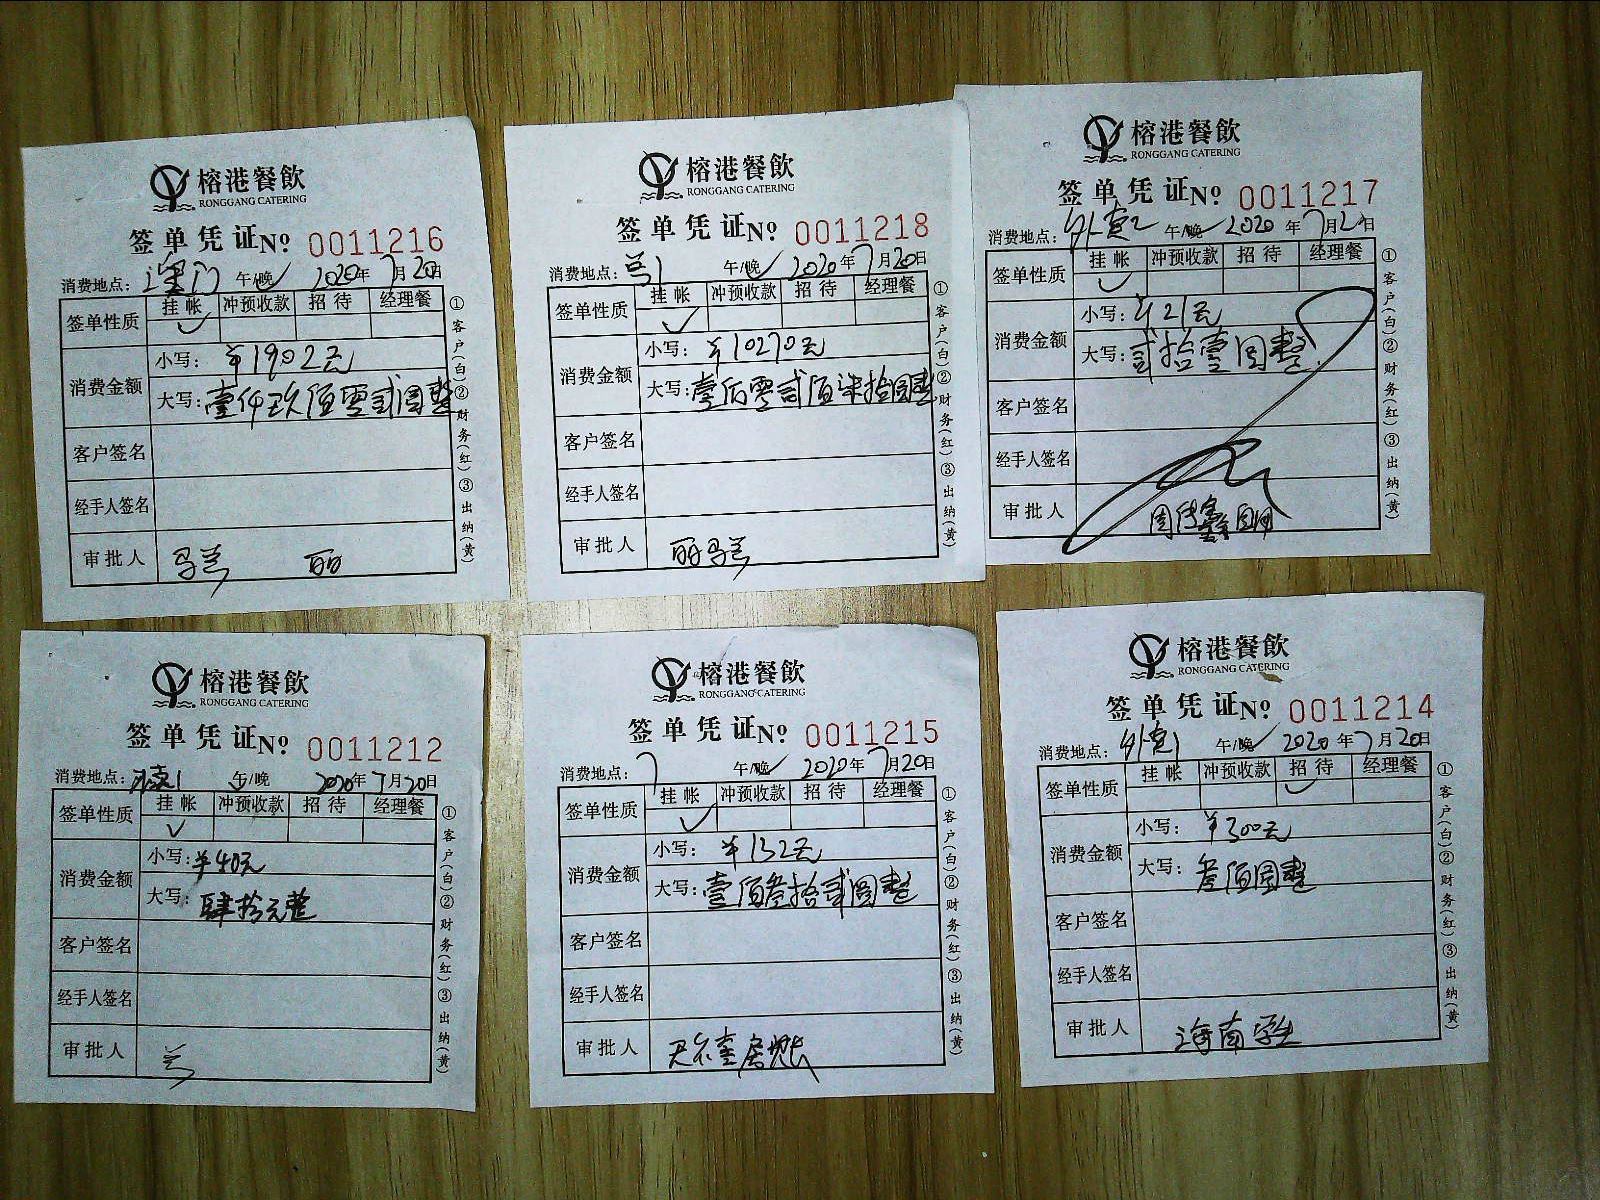 榕港餐飲
RONGGANG CATERING
签单凭证№ 0011216
消费地点: 午/晚✓ 2020年7月20日
签单性质 挂帐 冲预收款 招待 经理餐
✓
消费金额 小写: ¥1902元
大写: 壹仟玖佰零贰圆整
客户签名
经手人签名
审批人 马兰 丽
①客户(白)②财务(红)③出纳(黄)
榕港餐飲
RONGGANG CATERING
签单凭证№ 0011218
消费地点: 午/晚✓ 2020年7月20日
签单性质 挂帐 冲预收款 招待 经理餐
✓
消费金额 小写: ¥10270元
大写: 零贰佰柒拾圆整
客户签名
经手人签名
审批人 丽马兰
①客户(白)②财务(红)③出纳(黄)
榕港餐飲
RONGGANG CATERING
签单凭证№ 0011217
消费地点: 外宾2 午/晚 2020年7月2日
签单性质 挂帐 冲预收款 招待 经理餐
✓
消费金额 小写: ¥21元
大写: 贰拾壹圆整
客户签名
经手人签名
审批人
①客户(白)②财务(红)③出纳(黄)
榕港餐飲
RONGGANG CATERING
签单凭证№ 0011212
消费地点: 午/晚 2020年7月20日
签单性质 挂帐 冲预收款 招待 经理餐
✓
消费金额 小写: ¥40元
大写: 肆拾元整
客户签名
经手人签名
审批人 兰
①客户(白)②财务(红)③出纳(黄)
榕港餐飲
RONGGANG CATERING
签单凭证№ 0011215
消费地点: 7 午/晚✓ 2020年7月20日
签单性质 挂帐 冲预收款 招待 经理餐
✓
消费金额 小写: ¥132元
大写: 壹佰叁拾贰圆整
客户签名
经手人签名
审批人
①客户(白)②财务(红)③出纳(黄)
榕港餐飲
RONGGANG CATERING
签单凭证№ 0011214
消费地点: 外宾1 午/晚✓ 2020年7月20日
签单性质 挂帐 冲预收款 招待 经理餐
✓
消费金额 小写: ¥300元
大写: 叁佰圆整
客户签名
经手人签名
审批人 海南学生
①客户(白)②财务(红)③出纳(黄)